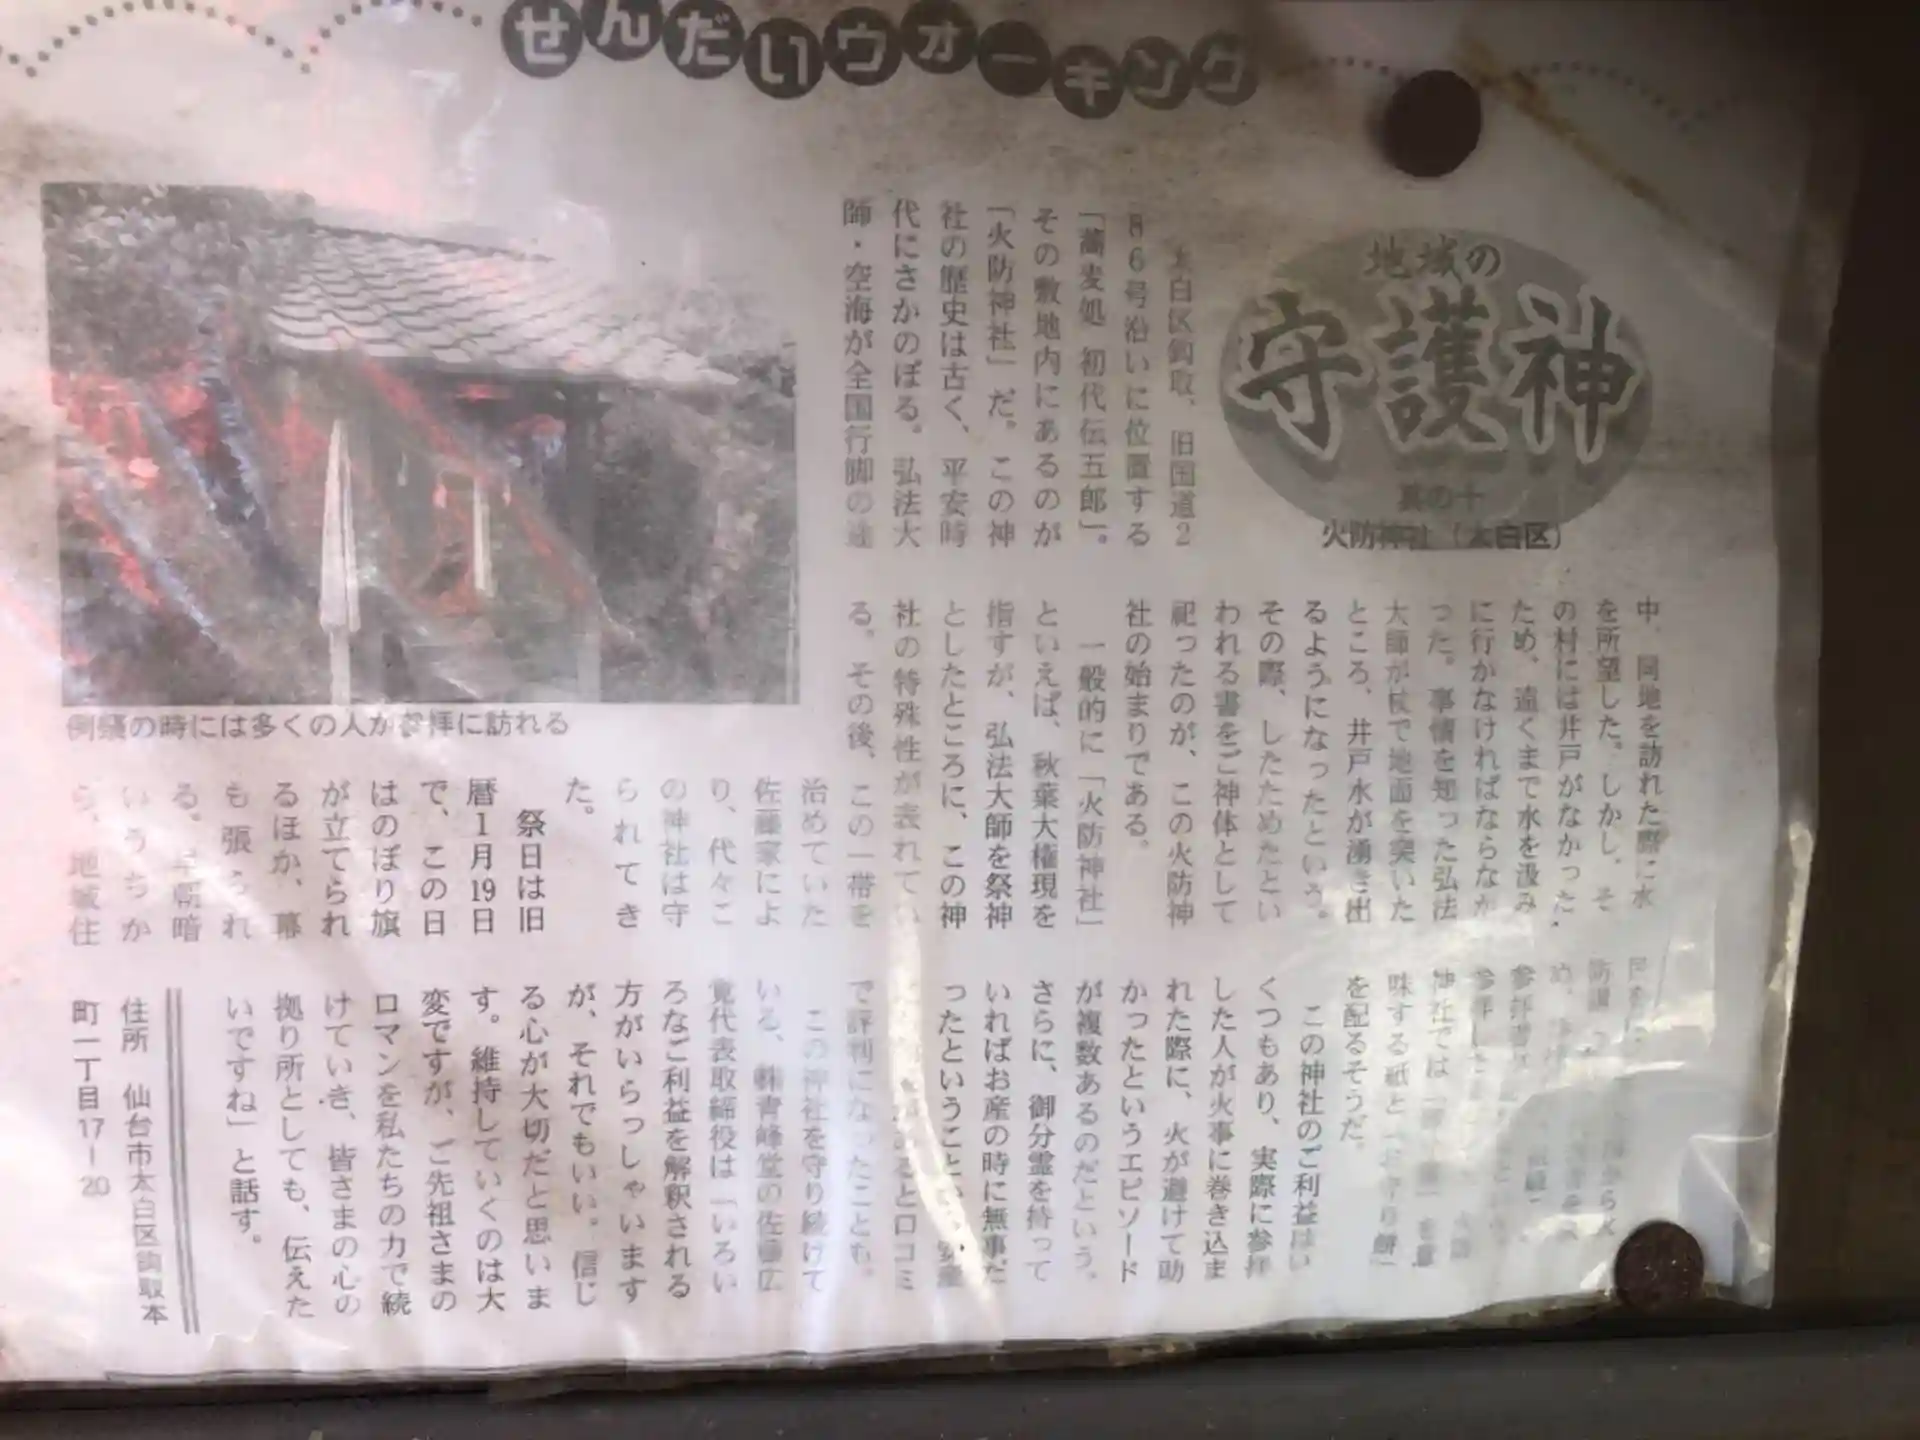 せんだいウオーキング
地域の
守護神
其の十
火防神社(太白区)
太白区鈎取、旧国道2
86号沿いに位置する
「蕎麦処 初代伝五郎」。
その敷地内にあるのが
「火防神社」だ。この神
社の歴史は古く、平安時
代にさかのぼる。弘法大
師・空海が全国行脚の途
中、同地を訪れた際に水
を所望した。しかし、そ
の村には井戸がなかった
ため、遠くまで水を汲み
に行かなければならなか
った。事情を知った弘法
大師が杖で地面を突いた
ところ、井戸水が湧き出
るようになったという。
その際、したためたとい
われる書をご神体として
祀ったのが、この火防神
社の始まりである。
一般的に「火防神社」
といえば、秋葉大権現を
指すが、弘法大師を祭神
としたところに、この神
社の特殊性が表れてい
る。その後、この一帯を
治めていた
佐藤家によ
り、代々こ
の神社は守
られてき
た。
祭日は旧
暦1月19日
で、この日
はのぼり旗
が立てられ
るほか、幕
も張られ
る。早朝暗
いうちか
ら、地域住
例祭の時には多くの人が参拝に訪れる
神社では
味する紙と「お守り餅」
を配るそうだ。
この神社のご利益はい
くつもあり、実際に参拝
した人が火事に巻き込ま
れた際に、火が避けて助
かったというエピソード
が複数あるのだという。
さらに、御分霊を持って
いればお産の時に無事だ
ったということで、安産
あるとロコミ
で評判になったことも。
この神社を守り続けて
いる、㈱青峰堂の佐藤広
覚代表取締役は「いろい
ろなご利益を解釈される
方がいらっしゃいます
が、それでもいい。信じ
る心が大切だと思いま
す。維持していくのは大
変ですが、ご先祖さまの
ロマンを私たちの力で続
けていき、皆さまの心の
拠り所としても、伝えた
いですね」と話す。
住所 仙台市太白区鈎取本
町一丁目17−20